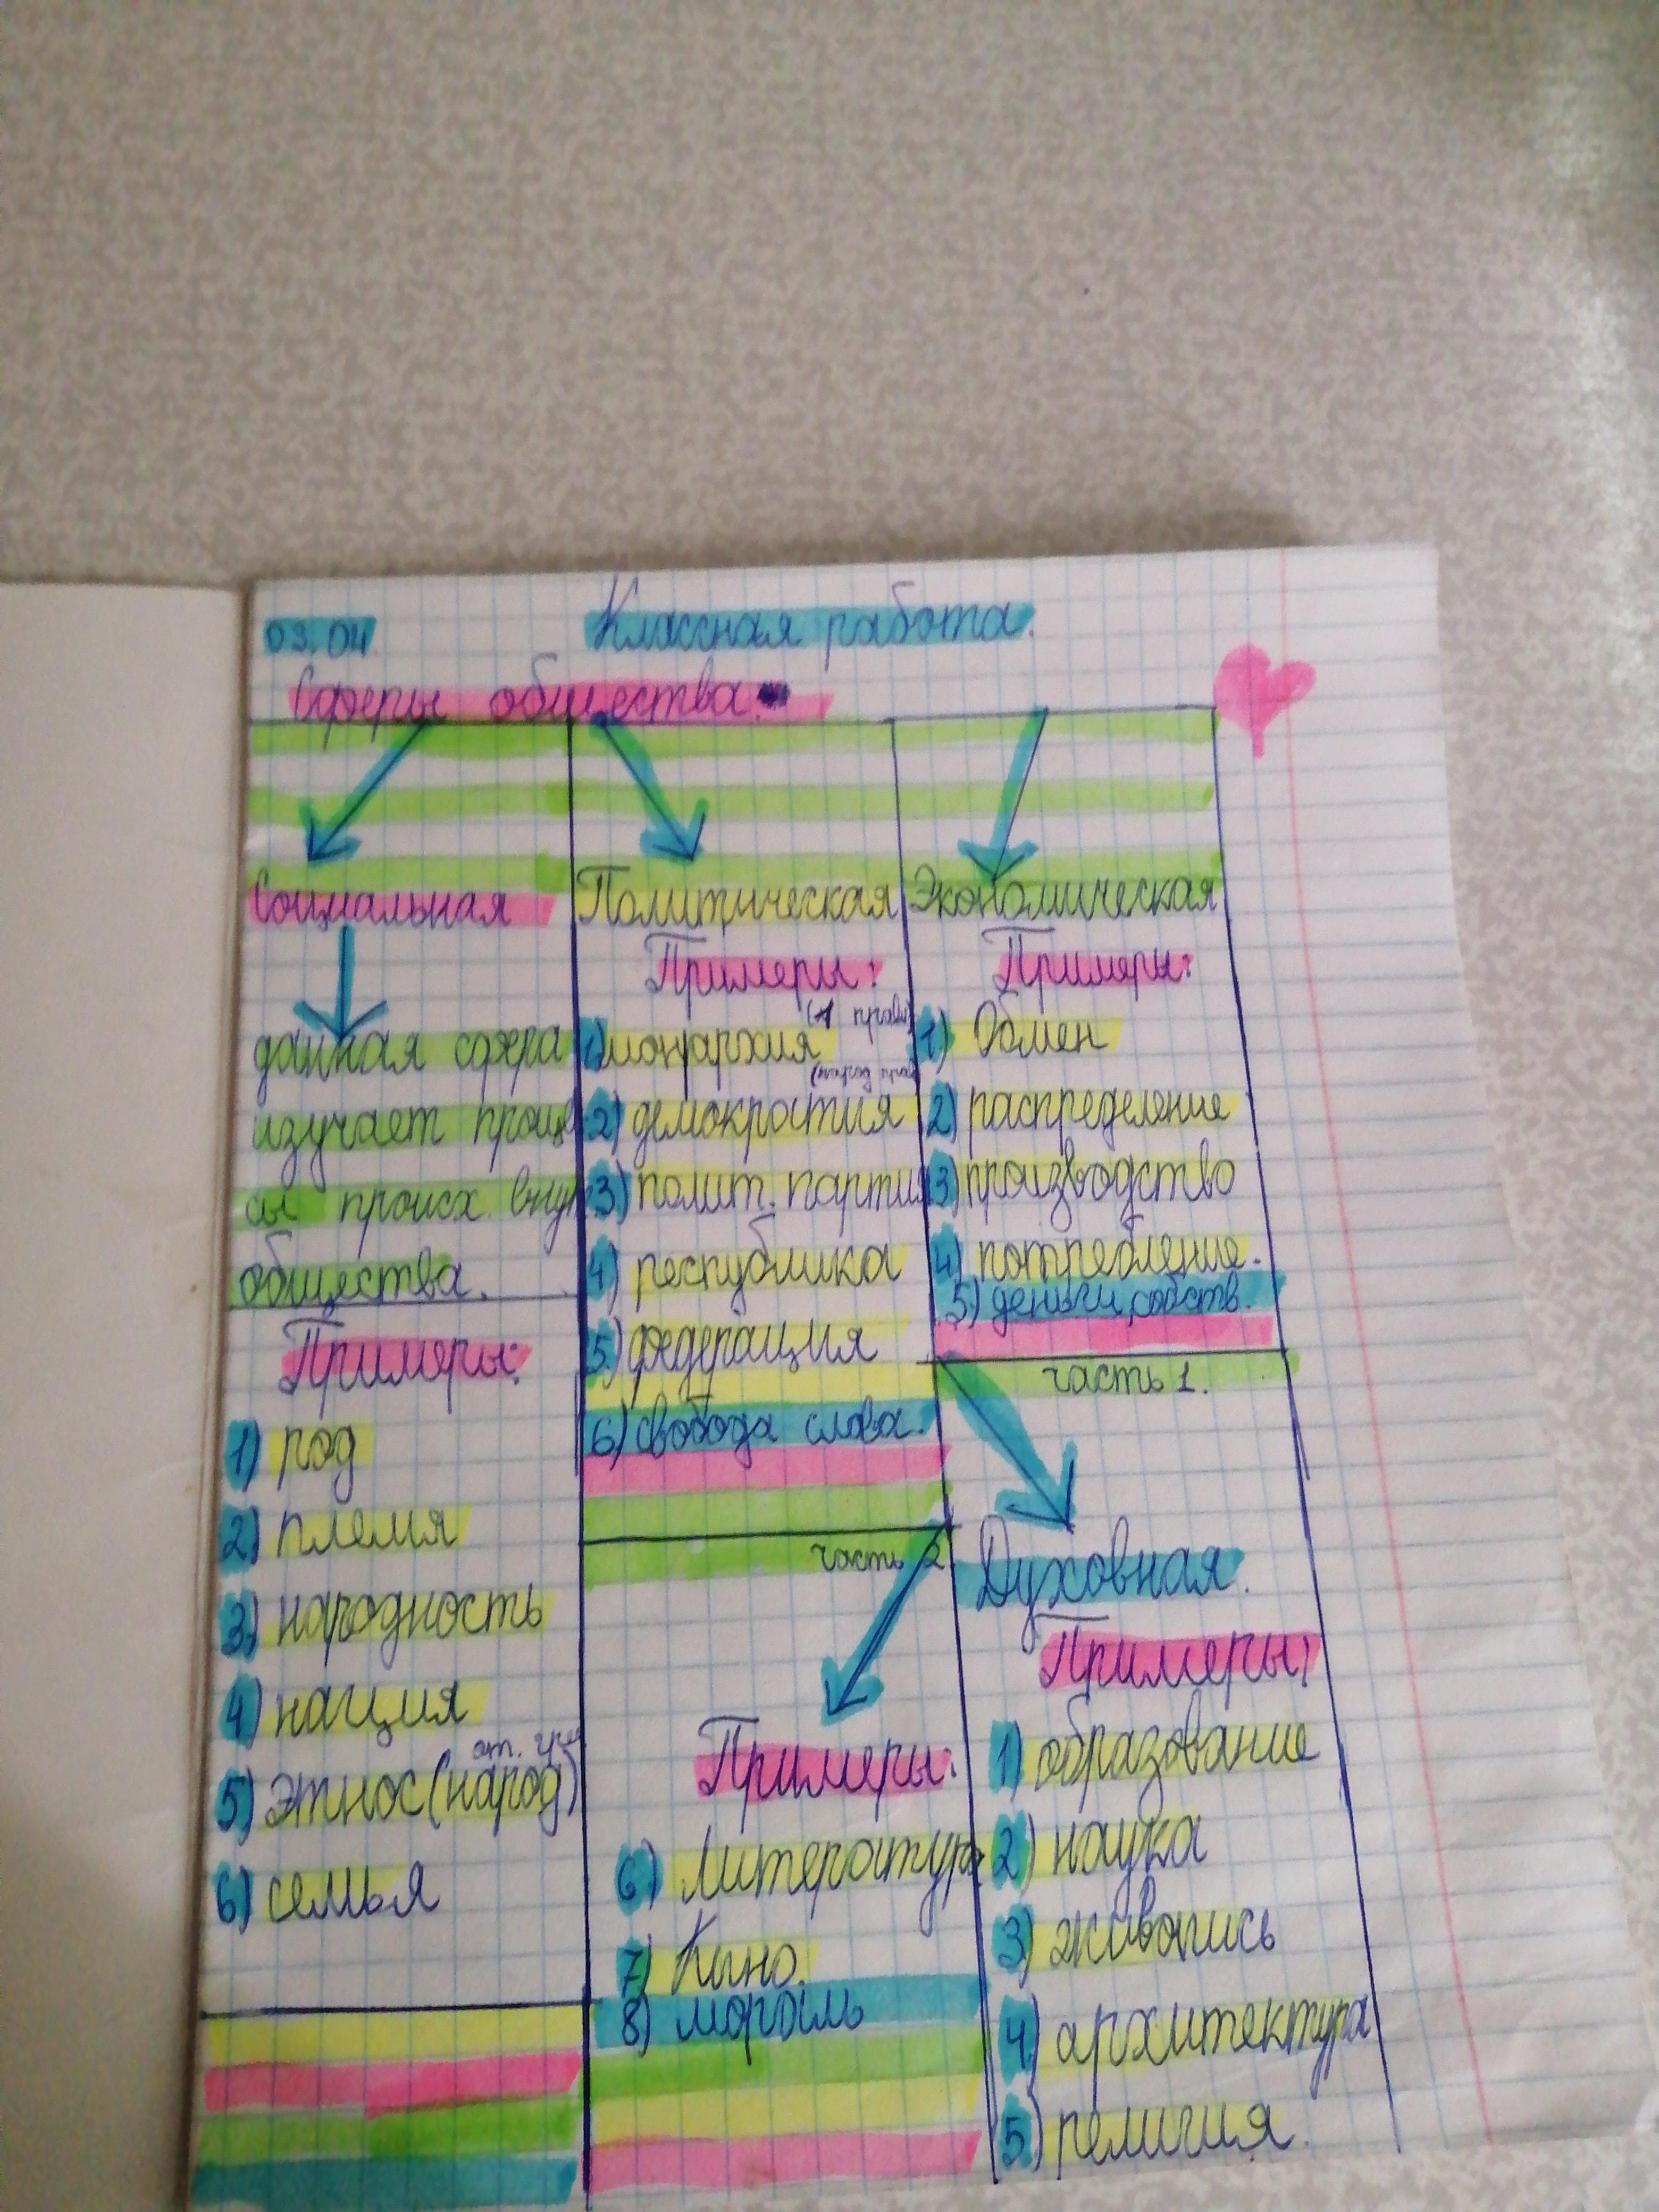 03.04
Классная работа.
Сферы общества.
Социальная
данная сфера
изучает процес
сы происх. внут
общества.
Примеры:
1) род
2) племя
3) народность
4) нация
5) этнос (народ)
6) семья
Политическая
Примеры:
(1 прав)
1) монархия
(народ прав
2) демократия
3) полит. партия
4) республика
5) федерация
6) свобода слова.
Экономическая
Примеры:
1) Обмен
2) распределение
3) производство
4) потребление.
5) деньги, собств.
часть 1.
Духовная.
Примеры:
1) образование
2) наука
3) живопись
4) архитектура
5) религия.
часть 2
Примеры:
6) Литература
7) Кино.
8) мораль